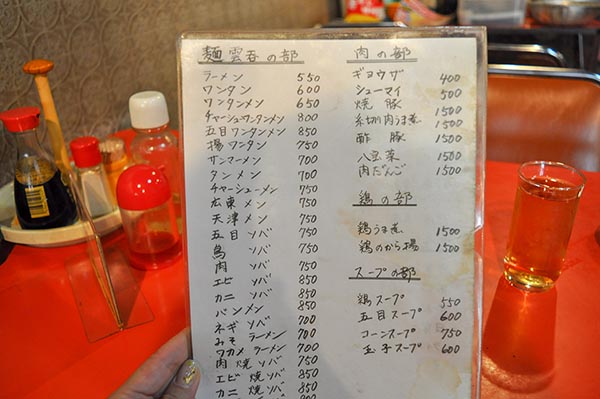 麺雲吞の部
ラーメン 550
ワンタン 600
ワンタンメン 650
チャーシューワンタンメン 800
五目ワンタンメン 850
揚ワンタン 750
サンマーメン 700
タンメン 700
チャーシューメン 750
広東メン 750
天津メン 750
五目ソバ 750
鳥ソバ 750
肉ソバ 750
エビソバ 850
カニソバ 850
バンメン 850
ネギソバ 700
みそラーメン 700
ワカメラーメン 700
肉焼ソバ 750
エビ焼ソバ 850
カニ焼ソバ 850
肉の部
ギョウザ 400
シューマイ 500
焼豚 1500
糸切肉うま煮 1500
酢豚 1500
八宝菜 1500
肉だんご 1500
鶏の部
鶏うま煮 1500
鶏のから揚 1500
スープの部
鶏スープ 550
五目スープ 600
コーンスープ 750
玉子スープ 600